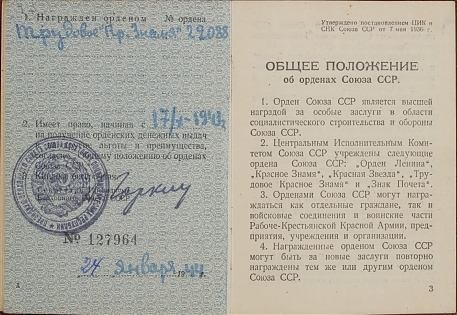 1. Награжден орденом № ордена
Трудовое "Кр. Знамя" 22088
2. Имеет право, начиная с
на получение орденских денежных выдач
льготы и преимущества,
Общему положению об орденах
№ 127964
24 января 1944
Утверждено постановлением ЦИК и
СНК Союза ССР от 7 мая 1936 г.
ОБЩЕЕ ПОЛОЖЕНИЕ
об орденах Союза ССР.
1. Орден Союза ССР является высшей
наградой за особые заслуги в области
социалистического строительства и обороны
Союза ССР.
2. Центральным Исполнительным Коми-
тетом Союза ССР учреждены следующие
ордена Союза ССР: „Орден Ленина",
„Красное Знамя", „Красная Звезда", „Тру-
довое Красное Знамя" и „Знак Почета".
3. Орденами Союза ССР могут награ-
ждаться как отдельные граждане, так и
войсковые соединения и воинские части
Рабоче-Крестьянской Красной Армии, пред-
приятия, учреждения и организации.
4. Награжденные орденом Союза ССР
могут быть за новые заслуги повторно
награждены тем же или другим орденом
Союза ССР.
3